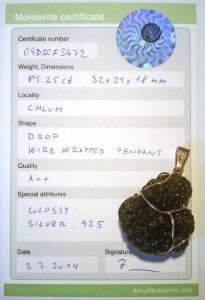 Moldavite certificate
Certificate number
04DSCF5472
Weight, Dimensions
89.25ct 32x29x18mm
Locality
CHLUM
Shape
DROP
WIRE WRAPPED PENDANT
Quality
A++
Special attributes
GLOSSY
SILVER 925
Date
Signature
3.3.2014
AboutMoldavites.com